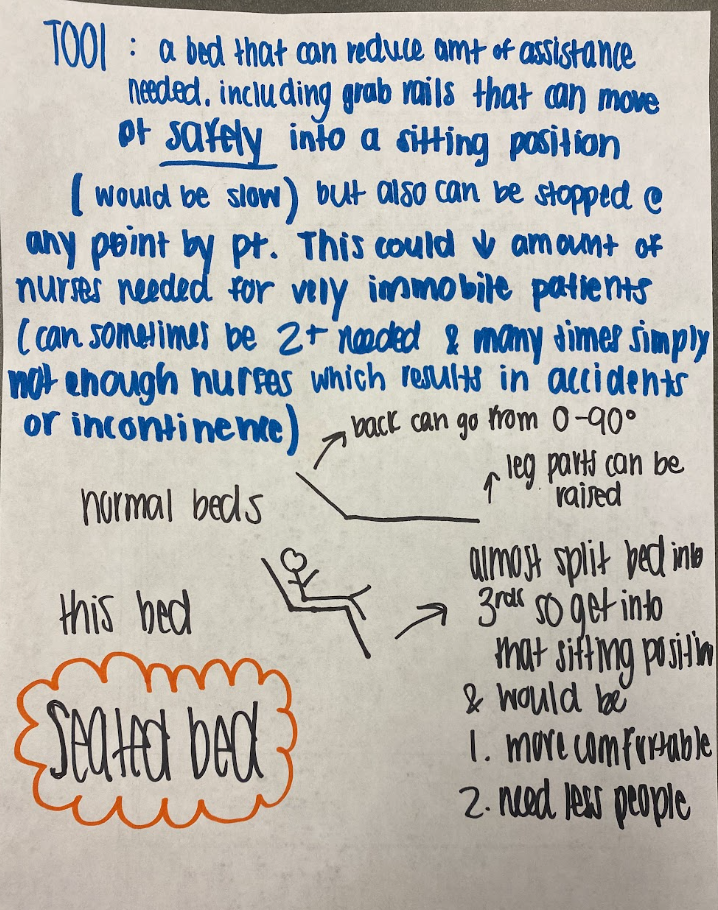 TOOl : a bed that can reduce amt of assistance
needed, including grab rails that can move
pt safely into a sitting position
( would be slow) but also can be stopped @
any point by pt. This could ↓ amount of
nurses needed for very immobile patients
(can sometimes be 2+ needed & many times simply
not enough nurses which results in accidents
or incontinence)
back can go from 0-90°
leg parts can be
raised
normal beds
almost split bed into
3rds so get into
that sitting position
& would be
1. more comfortable
2. need less people
this bed
Seated bed